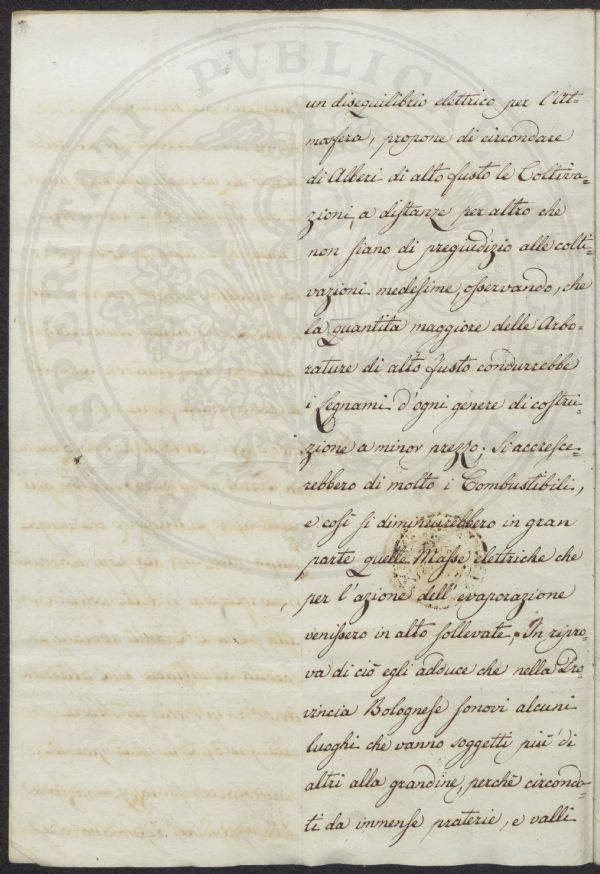 PROSPERITATI PVBLICAE
un disequilibrio elettrico per l'At-
mosfera, propone di circondare
di Alberi di alto fusto le Coltiva-
zioni, a distanze per altro che
non siano di pregiudizio alle colti-
vazioni medesime, osservando, che
la quantità maggiore delle Arbo-
rature di alto fusto condurrebbe
i Legnami d'ogni genere di costru-
zione a minor prezzo; si accresce-
rebbero di molto i Combustibili,
e così si diminuirebbero in gran
parte quelle Masse elettriche che
per l'azione dell'evaporazione
venissero in alto sollevate. In ripro-
va di ciò egli adduce che nella Pro-
vincia Bolognese sonovi alcuni
luoghi che vanno soggetti più di
altri alla grandine, perchè circonda-
ti da immense praterie, e valli